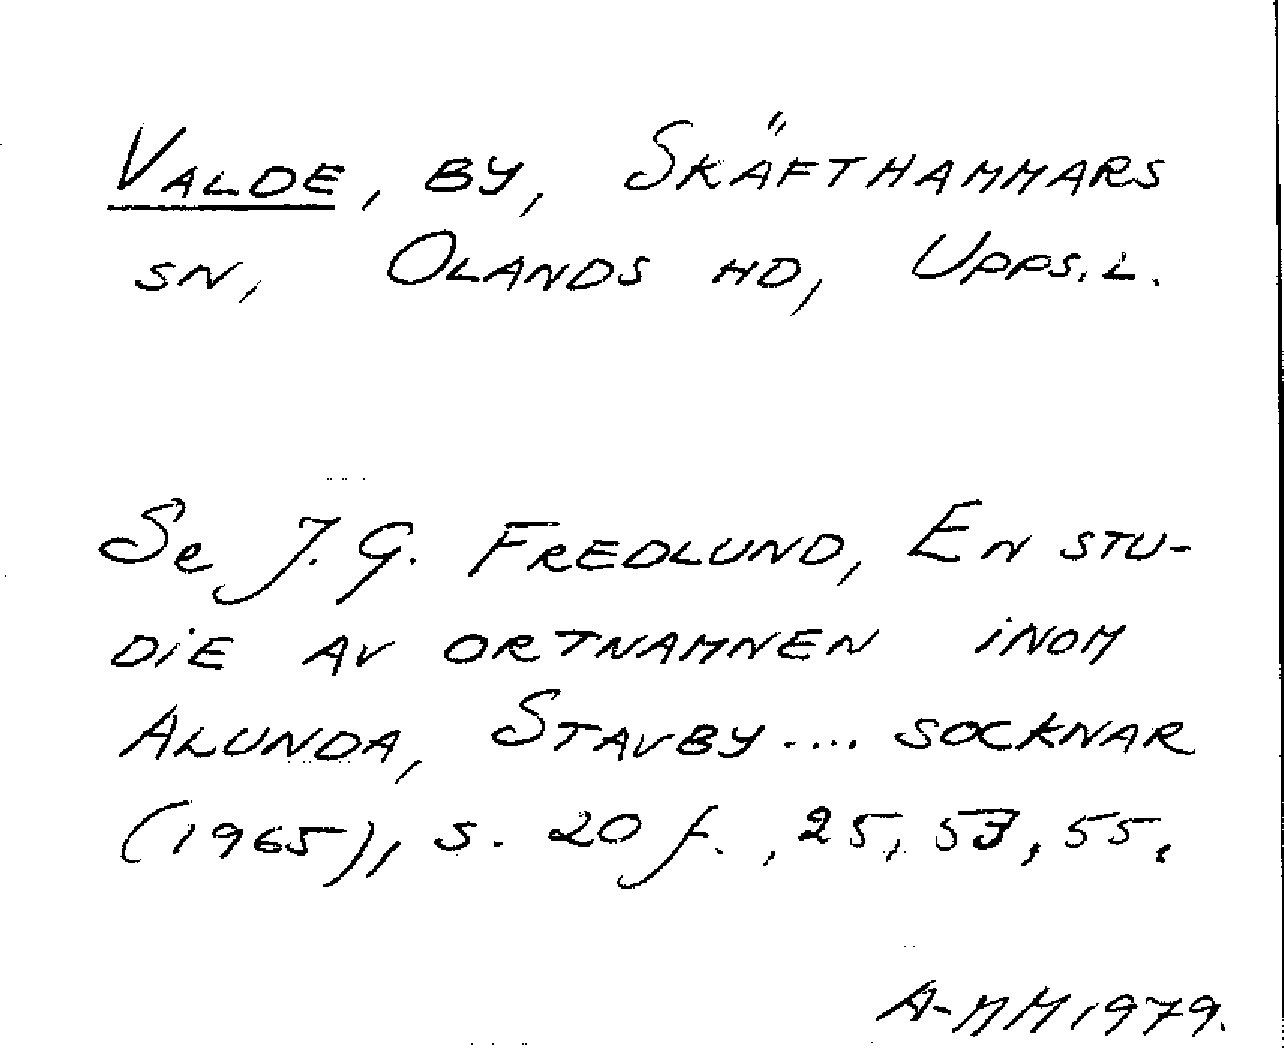 VALDE, BY, SKÄFTHAMMARS
SN, OLANDS HD, UPPS. L.
Se J. G. FREDLUND, EN STU-
DIE AV ORTNAMNEN INOM
ALUNDA, STAVBY .... SOCKNAR
(1965), S. 20 f., 25, 53, 55.
A-MM 1979.